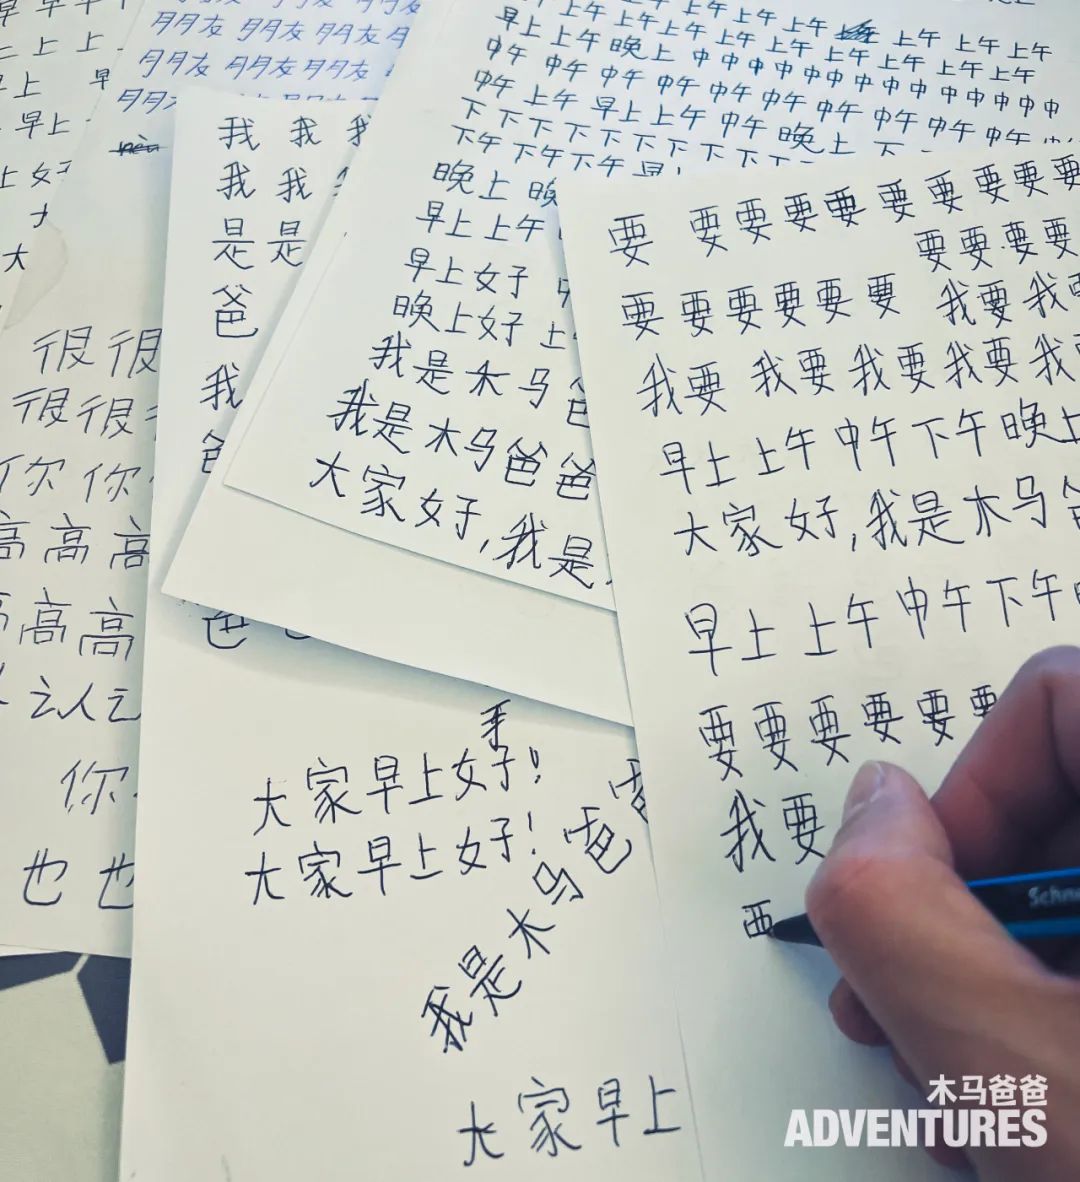 早 早 早 早
上 上 上
早上
早上
上 好
大
大
朋友 朋友 朋友
朋友 朋友 朋友
朋友
很 很
很 很
你 你
高 高 高
高 高
认 认
你
也 也
我 我 我
我 我
是 是
爸
我
爸
爸
上午 上午 上午 上午 上午
早上 上午 上午 上午 上午 上午 上午 上午
早上 上午 晚上 中 中 中 中 中 中 中 中 中 中 中 中 中
中午 中午 中午 中午 中午 中午 中午 中午 中午
中午 上午 早上 上午 中午 晚上 下
下 下 下 下 下 下 下 下 下
下午 下午 下午 早上
晚上 晚
早上 上午
早上好 中
晚上好 上
我是木马爸
我是木马爸爸
大家好,我是
要 要 要 要 要 要 要 要 要 要
要 要 要 要
要 要 要 要 要 要 我要 我要
我要 我要 我要 我要 我
早上 上午 中午 下午 晚上
大家好,我是木马爸
早上 上午 中午 下午
要 要 要 要 要 要
我要
西
大家早上好!
大家早上好!
我是木马爸爸
大家早上
Schne
木马爸爸
ADVENTURES